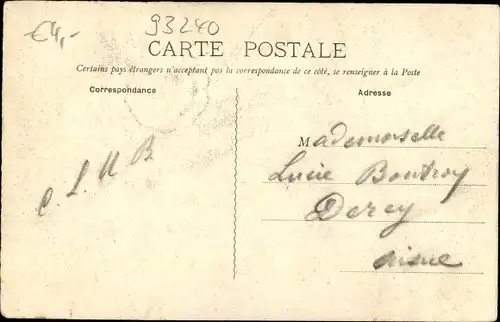 €4,-
93240
CARTE POSTALE
Certains pays étrangers n'acceptant pas la correspondance de ce côté, se renseigner à la Poste
Correspondance
Adresse
Mademoiselle
C. L. U B
Lucie Boutroy
Dercy
Aisne